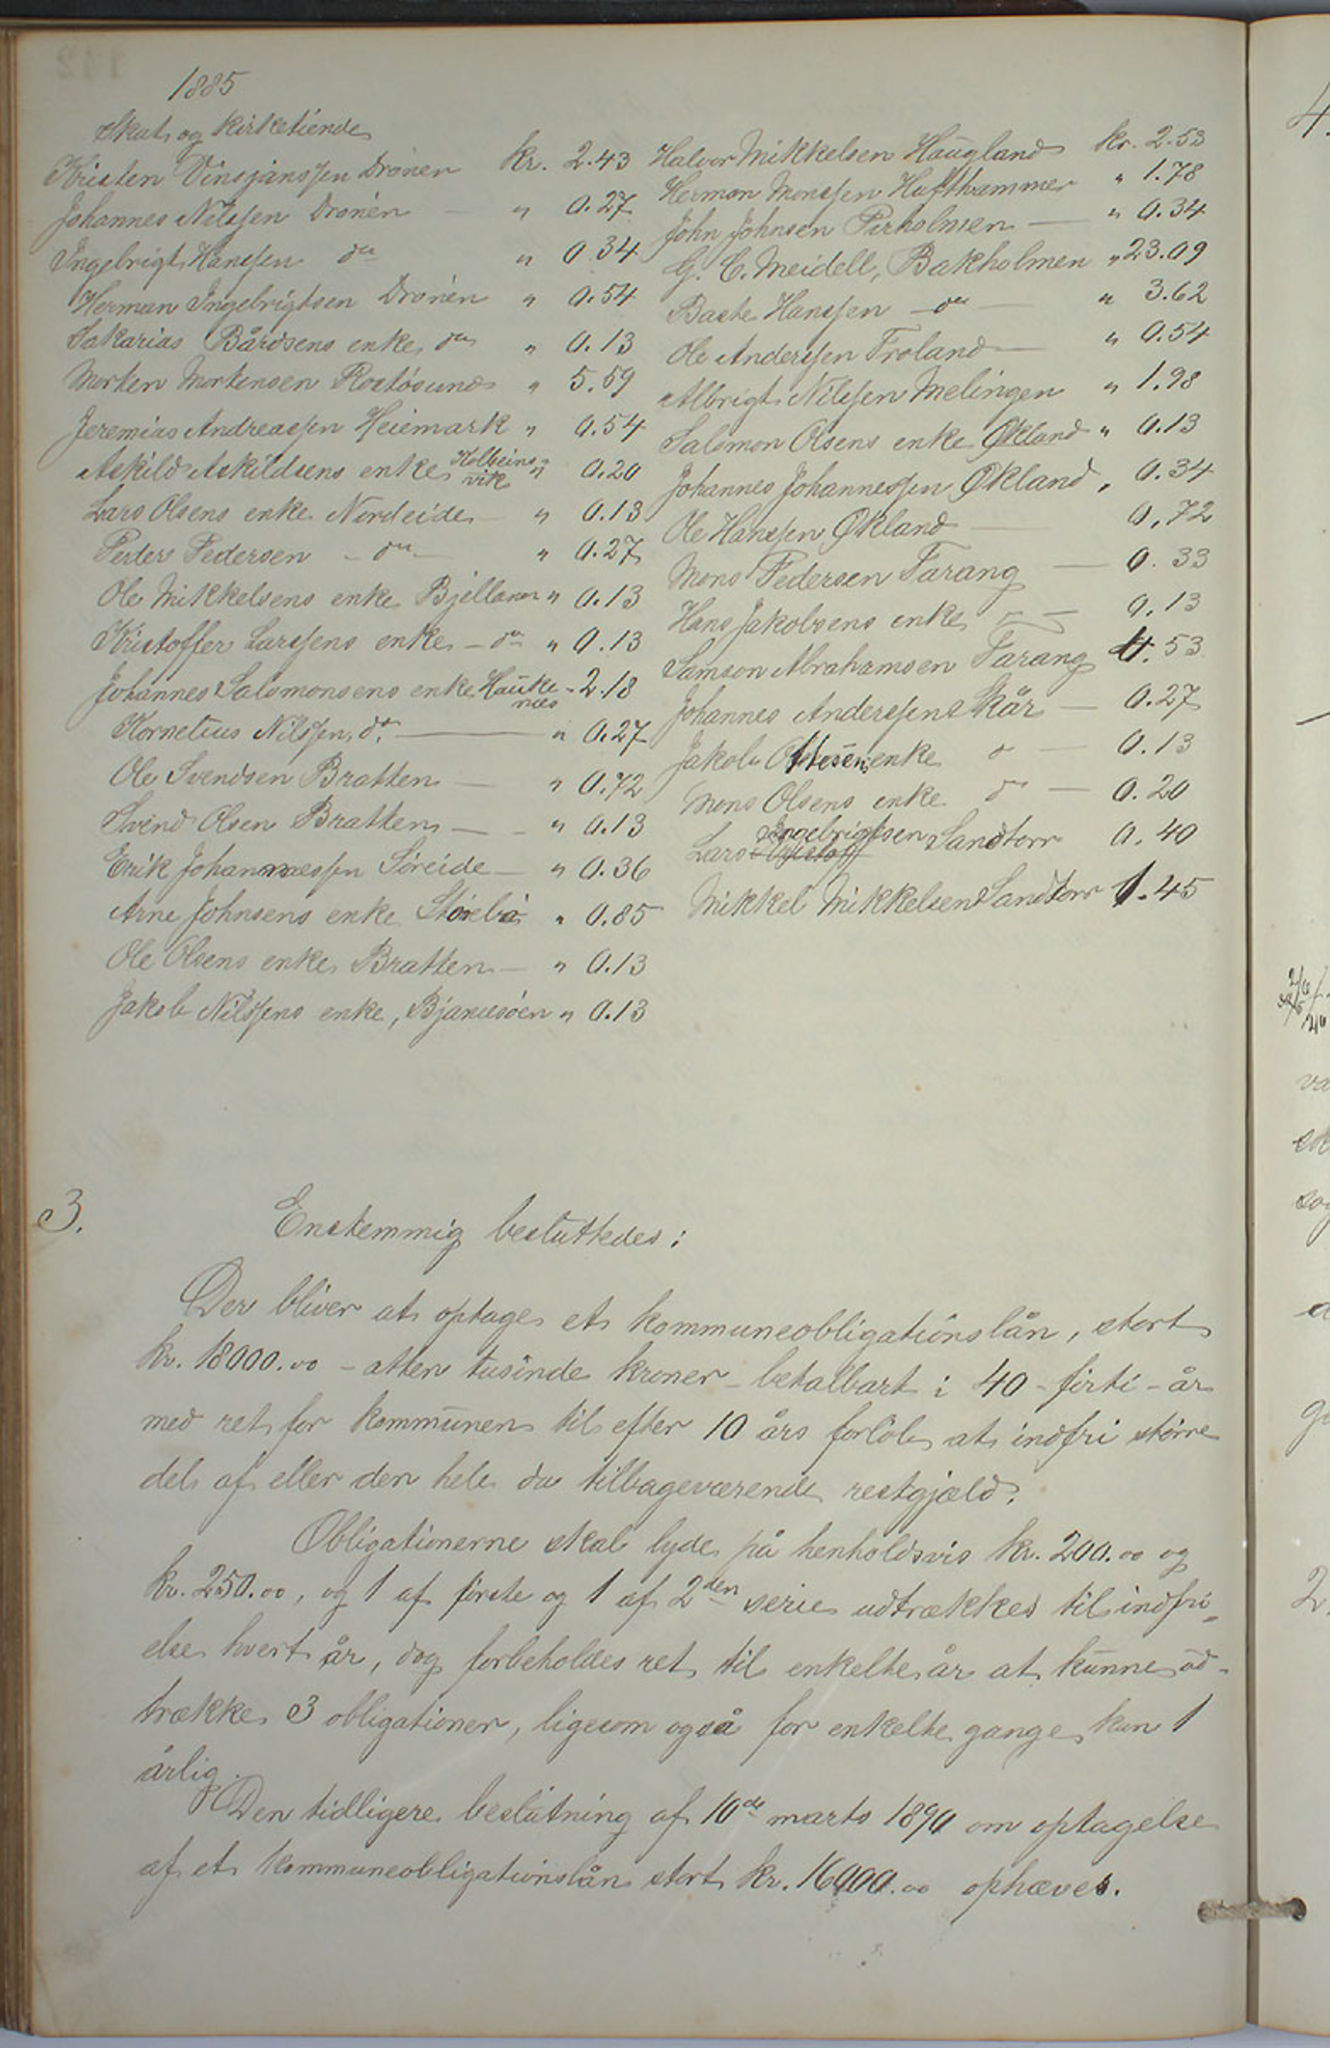 1885
Skat og kirketiende
Kristen Vinsjanssen Drönen kr. 2.43
Johannes Nilssen Drönen — " 0.27
Ingebrigt Hanssen do " 0.34
Herman Ingebrigtsen Drönen " 0.54
Sakarias Bårdsens enke do " 0.13
Morten Mortensen Rostösund " 5.59
Jeremias Andreassen Heiemark " 0.54
Askild Askildsens enke Kolbeins-vik " 0.20
Lars Olsens enke Nordeide — " 0.13
Peder Pedersen — do — " 0.27
Ole Mikkelsens enke Bjelland " 0.13
Kristoffer Larssens enke — do " 0.13
Johannes Salomonsens enke Haukenes - 2.18
Kornelius Nilssen, do. — " 0.27
Ole Svendsen Bratten — " 0.72
Svend Olsen Bratten — " 0.13
Erik Johannessen Söreide — " 0.36
Arne Johnsens enke Storebö " 0.85
Ole Olsens enke Bratten — " 0.13
Jakob Nilssens enke, Bjanesöen " 0.13
Halvor Mikkelsen Haugland kr. 2.53
Herman Monssen Hufthammer " 1.78
John Johnsen Pirholmen — " 0.34
G. C. Meidell, Bakholmen " 23.09
Baste Hanssen — do — " 3.62
Ole Anderssen Froland — " 0.54
Albrigt Nilssen Melingen " 1.98
Salomon Olsens enke Økland " 0.13
Johannes Johannessen Økland, 0.34
Ole Hanssen Økland — 0,72
Mons Pedersen Tarang — 0.33
Hans Jakobsens enke do — 0.13
Samson Abrahamsen Tarang 4.53
Johannes Anderssen Skår — 0.27
Jakob enke do — 0.13
Mons Olsens enke do — 0.20
Lars Ingebrigtsen Sandtorv 0.40
Mikkel Mikkelsen Sandtorv 1.45
3. Enstemmig besluttedes:
Der bliver at optage et kommuneobligationslån, stort
kr. 18000.00 - atten tusinde kroner - betalbart i 40 - firti - år
med ret for kommunen til efter 10 års forlöb at indfri större
del af eller den hele da tilbageværende restgjæld.
Obligationerne skal lyde på henholdsvis kr. 200.00 og
kr. 250.00, og 1 af förste og 1 af 2den serie udtrækkes til indfri-
else hvert år, dog forbeholdes ret til enkelte år at kunne ud-
trække 3 obligationer, ligesom også for enkelte gange kun 1
årlig.
Den tidligere beslutning af 10de marts 1890 om optagelse
af et kommuneobligationslån stort kr. 16000.00 ophæves.